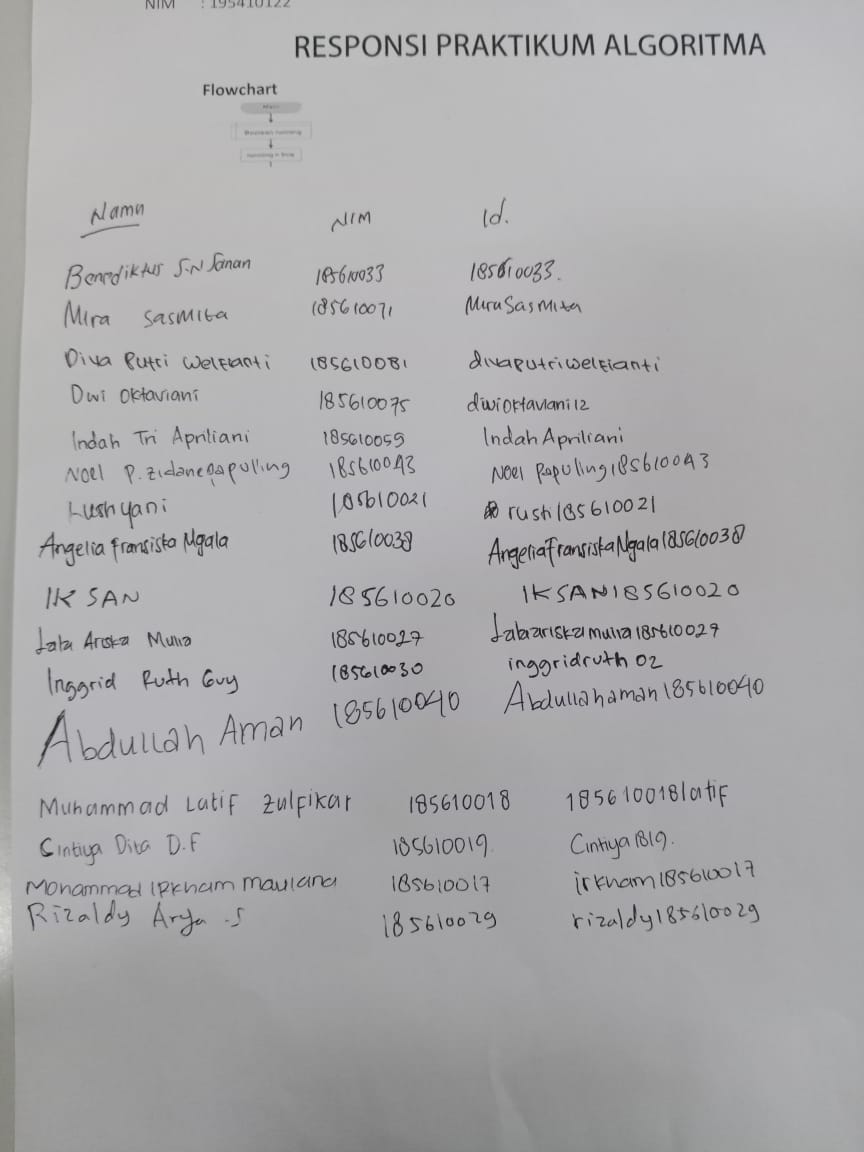 NIM : 195410122
RESPONSI PRAKTIKUM ALGORITMA
Flowchart
Nama NIM Id.
Benediktus S.N Sanan 185610033 185610033.
Mira Sasmita 185610071 MiraSasmita
Diva Putri Welfianti 185610081 divaputriwelfianti
Dwi Oktaviani 185610075 dwioktaviani12
Indah Tri Apriliani 185610059 Indah Apriliani
Noel P. 185610043 Noel 185610043
Lushyani 185610021 rusti185610021
Angelia Fransiska Ngala 185610038 AngeliaFransiskaNgala185610038
IKSAN 185610020 IKSAN185610020
Lala Ariska Mulia 185610027 Lalaariskamulia185610027
Inggrid Ruth Guy 185610030 inggridruth02
Abdullah Aman 185610040 Abdullahaman185610040
Muhammad Latif Zulfikar 185610018 185610018latif
Cintiya Dita D.F 185610019 Cintiya1819.
Mohammad Irkham maulana 185610017 irkham185610017
Rizaldy Arya .S 185610029 rizaldy185610029